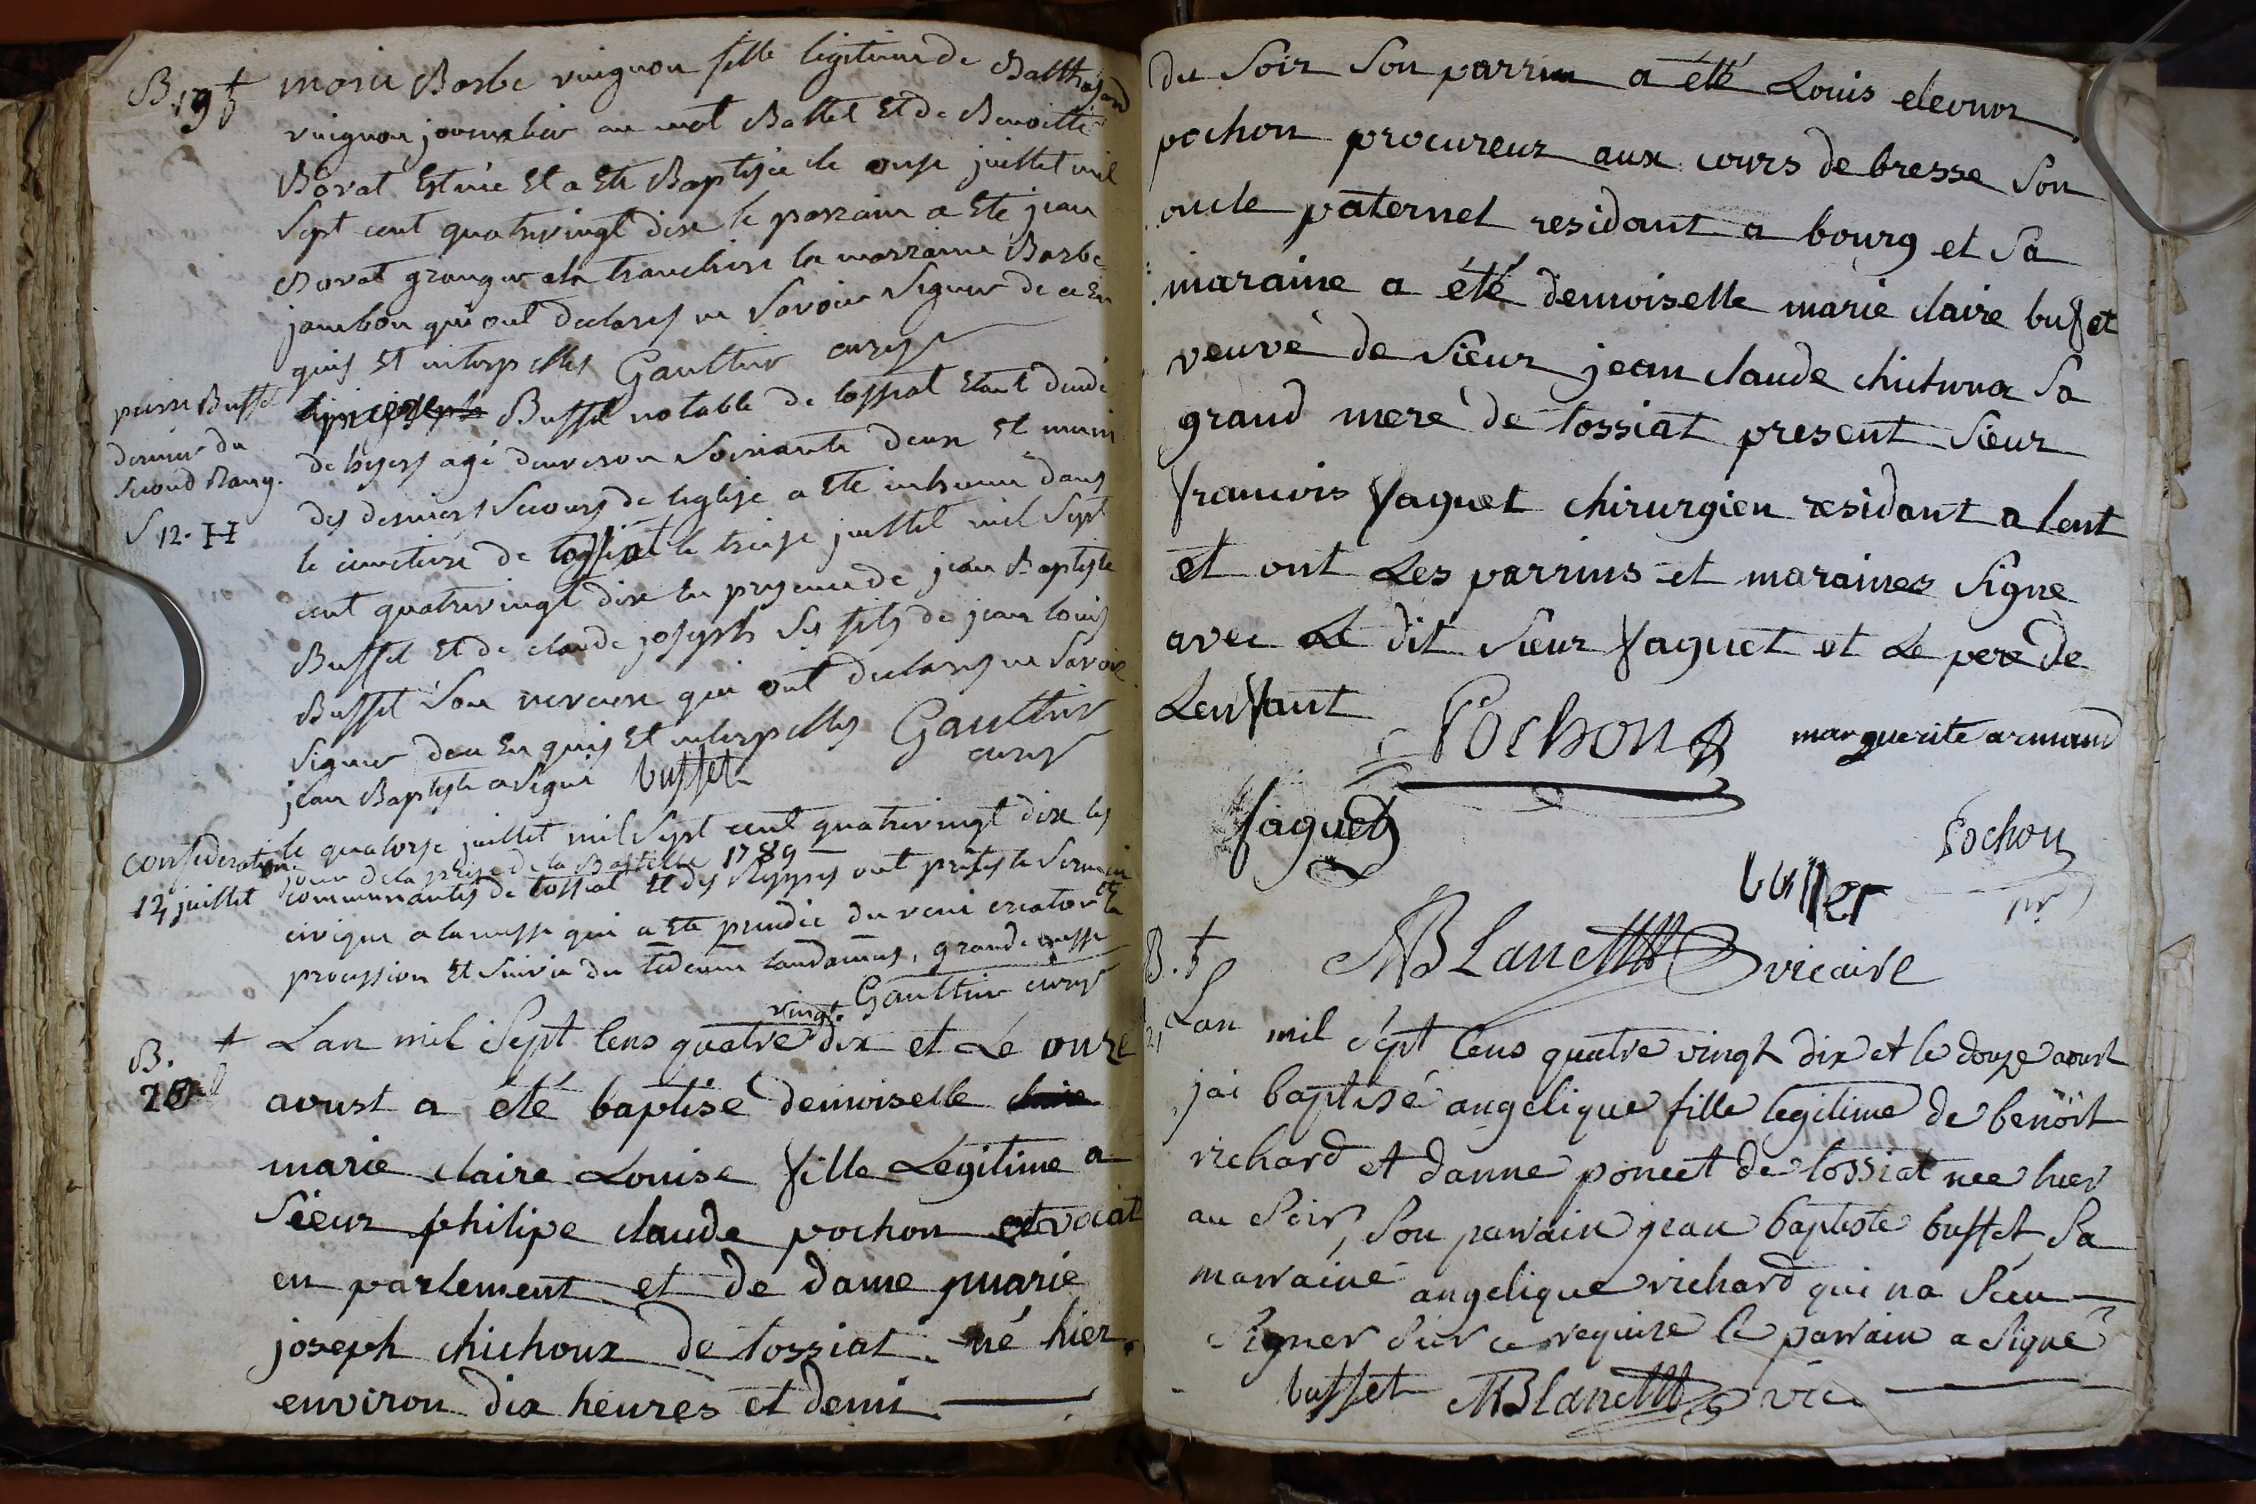 B 19 †
marie Barbe vuignon fille legitime de Balthasard
vuignon journalier au mot Battet Et de Benoitte
Bovat Est née Et a Ete Baptisée le onze juillet mil
Sept cent quatrevingt dix le parrain a Eté jean
Bovat granger a la tranchire la marraine Barbe
jambon qui ont declarés ne Savoir Signer de ce En
quis Et interpellés Gaultier curé
pierre Buffet
dernier du
Second Rang.
S 12. H
Buffet notable de tossiat Etant decedé
de hyers agé denviron Soixante deux Et muni
des derniers Secours de leglise a Eté inhumé dans
le cimetiere de tossiat le treize juillet mil Sept
cent quatrevingt dix En presence de jean Baptiste
Buffet Et de claude joseph Ses fils de jean louis
Buffet Son neveux qui ont declarés ne Savoir
Signer deu En quis Et interpellés Gaultier
curé
jean Baptiste a Signé buffet
consideration
14 juillet
le quatorze juillet mil Sept cent quatrevingt dix les
jour de la prise de la Bastille 1789
communautés de tossiat Et des Rippes ont pretés le Serment
civique a la messe qui a Ete precedée du veni creator Et la
procession Et Suivie du tedeum laudamus, grande messe
Gaultier curé
B. †
20
Lan mil Sept Cens quatre vingt dix et Le onze
avust a été baptisé demoiselle claire
marie claire Louise fille Legitime a
Sieur philipe claude pochon advocat
en parlement et de dame marie
joseph chichoux de tossiat né hier
environ dix heures et demi
du Soir Son parrin a étté Louis eleonor
pochon procureur aux cours de bresse Son
oncle paternel residant a bourg et Sa
maraine a été demoiselle marie claire bufet
veuve de Sieur jean claude chichoux Sa
grand mere de tossiat present Sieur
francois faguet chirurgien residant a lent
et ont Les parrins et maraines Signe
avec Le dit Sieur faguet et Le pere de
Lenfant
Pochon marguerite armand
faguet
Pochon
pr
buffet
MBLanc vicaire
B. †
21
Lan mil Sept Cens quatre vingt dix et le douze aoust
jai baptisé angelique fille legitime de benoit
richard et danne poncet de tossiat nee hier
au Soir, Son parrain jean baptiste buffet, Sa
marraine angelique richard qui na Sceu
Signer Sur ce requise le parrain a Signé
buffet MBLanc vic.